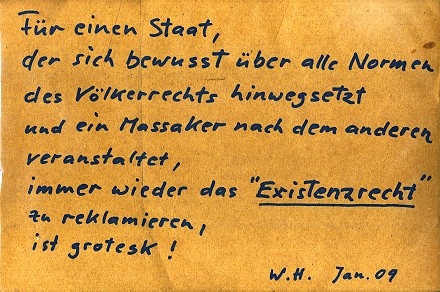 Für einen Staat,
der sich bewusst über alle Normen
des Völkerrechts hinwegsetzt
und ein Massaker nach dem anderen
veranstaltet,
immer wieder das "Existenzrecht"
zu reklamieren,
ist grotesk!
W.H. Jan. 09